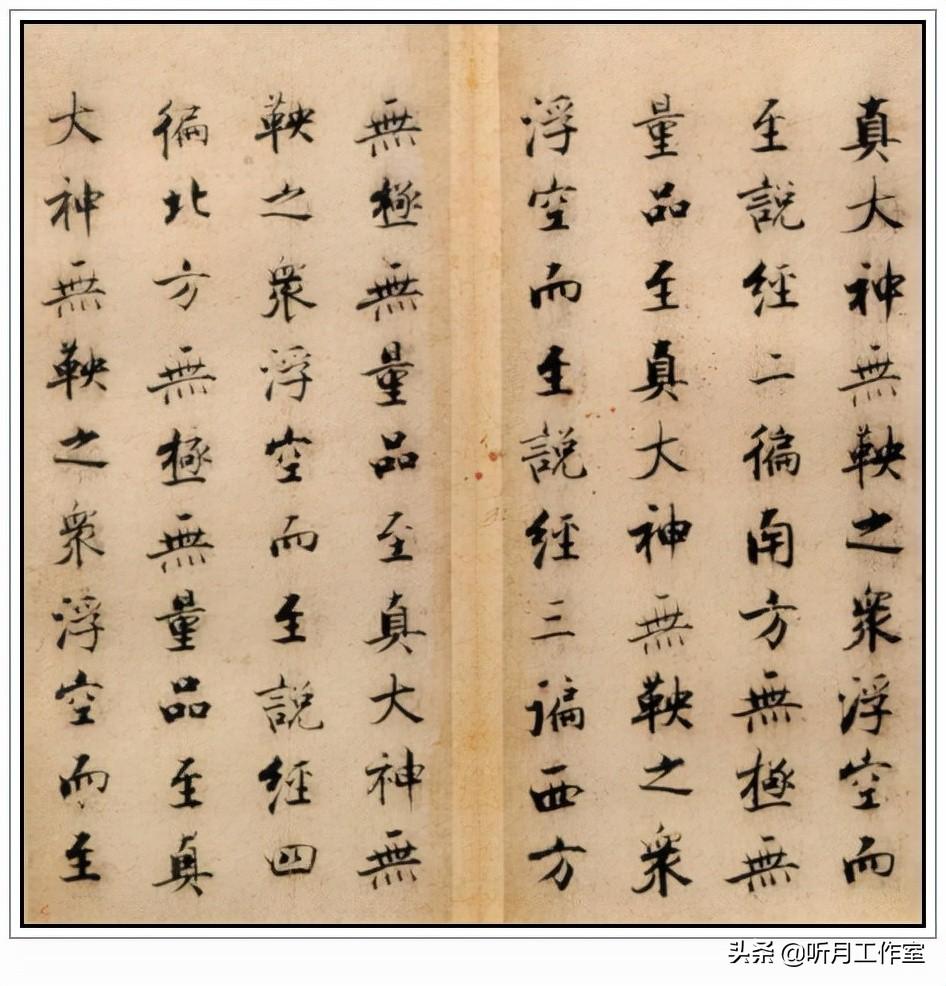 真大神無鞅之衆浮空而
至說經二徧南方無極無
量品至真大神無鞅之衆
浮空而至說經三徧西方
無極無量品至真大神無
鞅之衆浮空而至說經四
徧北方無極無量品至真
大神無鞅之衆浮空而至
头条 @听月工作室